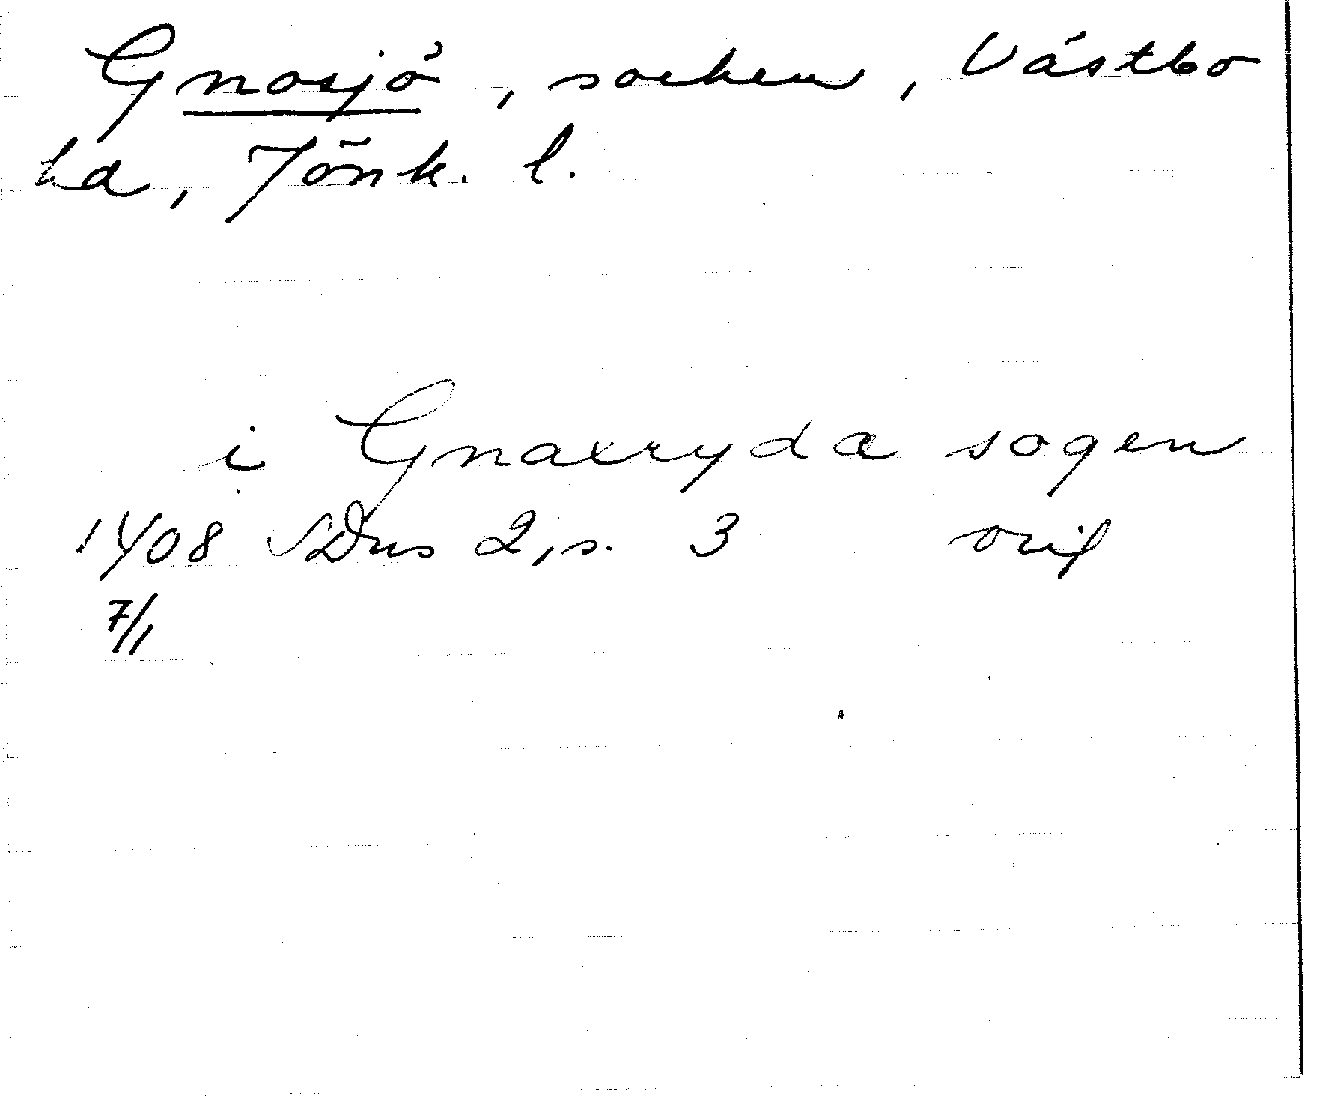 Gnosjö, socken, Västbo
hd, Jönk. l.
i Gnaxryda sogen
1408 SDns 2, s. 3 orig
7/1